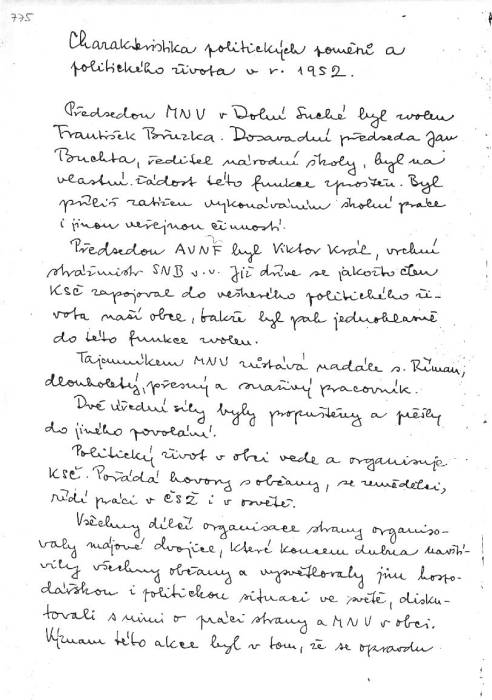 775
Charakteristika politických poměrů a
politického života v r. 1952.
Předsedou MNV v Dolní Suché byl zvolen
František Březka. Dosavadní předseda Jan
Buchta, ředitel národní školy, byl na
vlastní žádost této funkce zproštěn. Byl
příliš zatížen vykonáváním školní práce
i jinou veřejnou činností.
Předsedou AVNF byl Viktor Král, vrchní
strážmistr SNB v.v. Již dříve se jakožto člen
KSČ zapojoval do veškerého politického ži-
vota naší obce, takže byl pak jednohlasně
do této funkce zvolen.
Tajemníkem MNV zůstává nadále s. Říman,
dlouholetý, přesný a snaživý pracovník.
Dvě úřední síly byly propuštěny a přešly
do jiného povolání.
Politický život v obci vede a organisuje
KSČ. Pořádá hovory s občany, se zemědělci,
řídí práci v ČSŽ i v osvětě.
Všechny dílčí organisace strany organiso-
valy májové dvojice, které koncem dubna navští-
vily všechny občany a vysvětlovaly jim hospo-
dářskou i politickou situaci ve světě, disku-
tovali s nimi o práci strany a MNV v obci.
Význam této akce byl v tom, že se opravdu